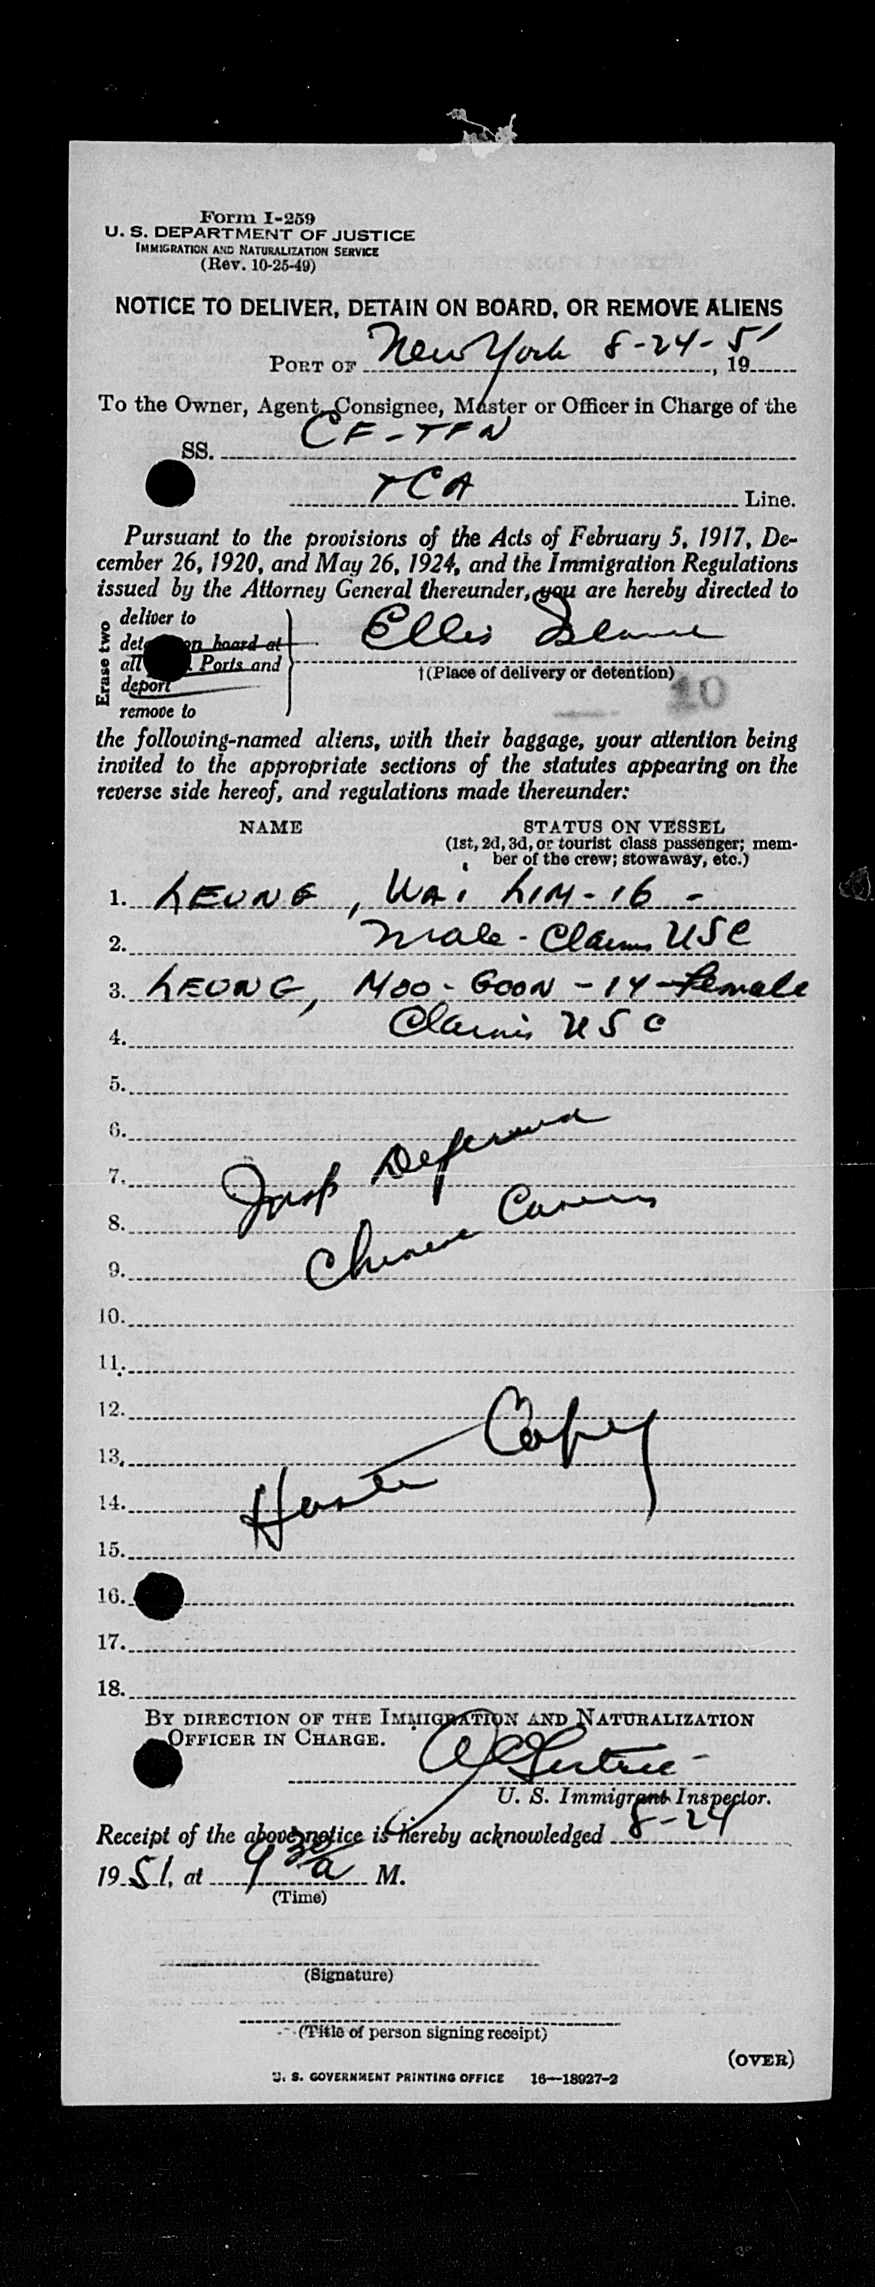 Form I-259
U. S. DEPARTMENT OF JUSTICE
IMMIGRATION AND NATURALIZATION SERVICE
(Rev. 10-25-49)
NOTICE TO DELIVER, DETAIN ON BOARD, OR REMOVE ALIENS
PORT OF New York 8-24-51, 19
To the Owner, Agent, Consignee, Master or Officer in Charge of the
SS. CF-TFN
TCA Line.
Pursuant to the provisions of the Acts of February 5, 1917, De-
cember 26, 1920, and May 26, 1924, and the Immigration Regulations
issued by the Attorney General thereunder, you are hereby directed to
Erase two
deliver to
on board at
all Ports and
deport
remove to
Ellis Island
†(Place of delivery or detention)
10
the following-named aliens, with their baggage, your attention being
invited to the appropriate sections of the statutes appearing on the
reverse side hereof, and regulations made thereunder:
NAME STATUS ON VESSEL
(1st, 2d, 3d, or tourist class passenger; mem-
ber of the crew; stowaway, etc.)
1. LEUNG, WAI LIM - 16 -
2. male - Claims USC
3. LEUNG, MOO-GOON - 14 - Female
4. Claims USC
5.
6.
7. Insp Deferred
8.
9. Chinese
10.
11.
12.
13. Copy
14.
15.
16.
17.
18.
BY DIRECTION OF THE IMMIGRATION AND NATURALIZATION
OFFICER IN CHARGE.
U. S. Immigrant Inspector.
Receipt of the above notice is hereby acknowledged 8-24
1951, at 9 30 a M.
(Time)
(Signature)
(Title of person signing receipt)
(OVER)
U. S. GOVERNMENT PRINTING OFFICE 16—18927-2